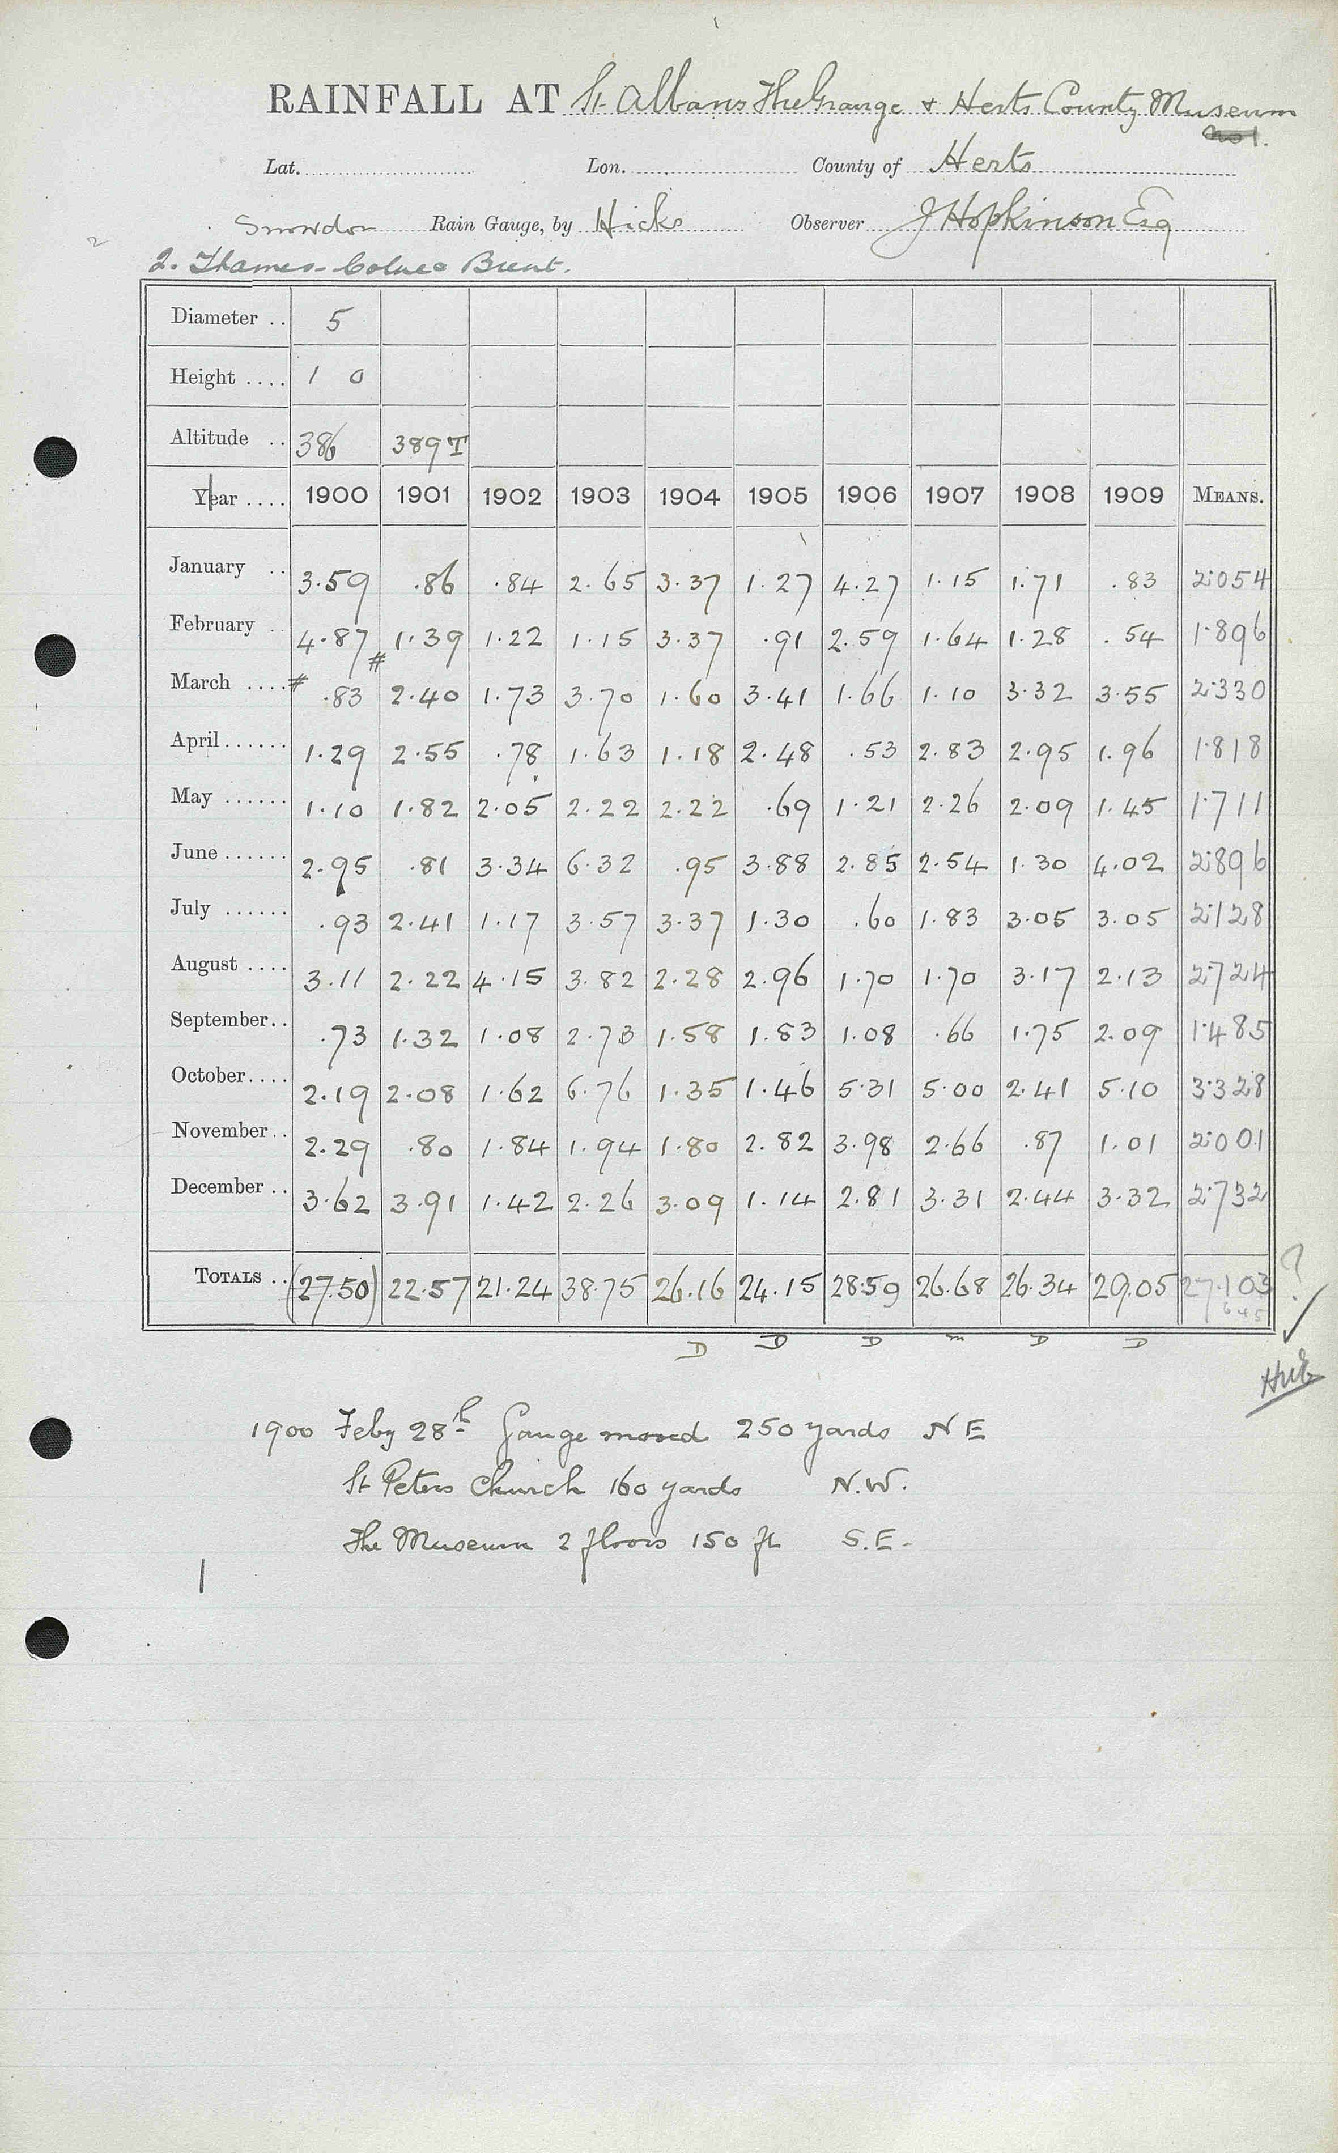 RAINFALL AT St. Albans The Grange & Herts County Museum
No 1.
Lat. Lon. County of Herts
Snowdon Rain Gauge, by Hicks Observer J Hopkinson Esq
2
2. Thames-Colne & Brent.
Diameter .. 5
Height .... 1 0
Altitude .. 386 389T
Year .... 1900 1901 1902 1903 1904 1905 1906 1907 1908 1909 MEANS.
January .. 3.59 .86 .84 2.65 3.37 1.27 4.27 1.15 1.71 .83 2.054
February .. 4.87 1.39 1.22 1.15 3.37 .91 2.59 1.64 1.28 .54 1.896
March .... # .83 # 2.40 1.73 3.70 1.60 3.41 1.66 1.10 3.32 3.55 2.330
April ...... 1.29 2.55 .78 1.63 1.18 2.48 .53 2.83 2.95 1.96 1.818
May ...... 1.10 1.82 2.05 2.22 2.22 .69 1.21 2.26 2.09 1.45 1.711
June ...... 2.95 .81 3.34 6.32 .95 3.88 2.85 2.54 1.30 4.02 2.896
July ...... .93 2.41 1.17 3.57 3.37 1.30 .60 1.83 3.05 3.05 2.128
August .... 3.11 2.22 4.15 3.82 2.28 2.96 1.70 1.70 3.17 2.13 2.724
September.. .73 1.32 1.08 2.73 1.58 1.83 1.08 .66 1.75 2.09 1.485
October.... 2.19 2.08 1.62 6.76 1.35 1.46 5.31 5.00 2.41 5.10 3.328
November.. 2.29 .80 1.84 1.94 1.80 2.82 3.98 2.66 .87 1.01 2.001
December .. 3.62 3.91 1.42 2.26 3.09 1.14 2.81 3.31 2.44 3.32 2.732
TOTALS .. (27.50) 22.57 21.24 38.75 26.16 24.15 28.59 26.68 26.34 29.05 27.103 ?
645
D D D m D D
1900 Feby 28th Gauge moved 250 yards NE
St Peters Church 160 yards N.W.
The Museum 2 floors 150 ft S.E.